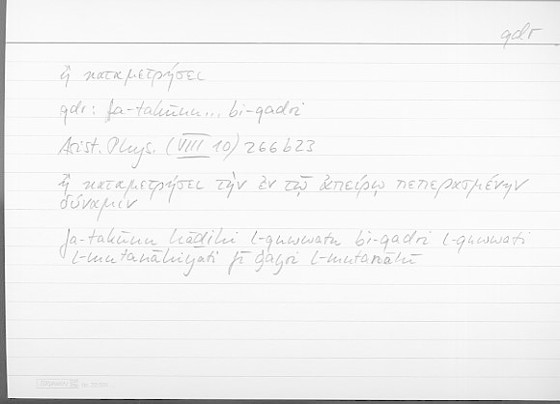 qdr
ἢ καταμετρήσει
qdr: fa-takūnu... bi-qadri
Arist. Phys. (VIII 10) 266b23
ἢ καταμετρήσει τὴν ἐν τῷ ἀπείρῳ πεπερασμένην
δύναμιν
fa-takūnu hāḏihi l-quwwatu bi-qadri l-quwwati
l-mutanāhiyati fī ġayri l-mutanāhī